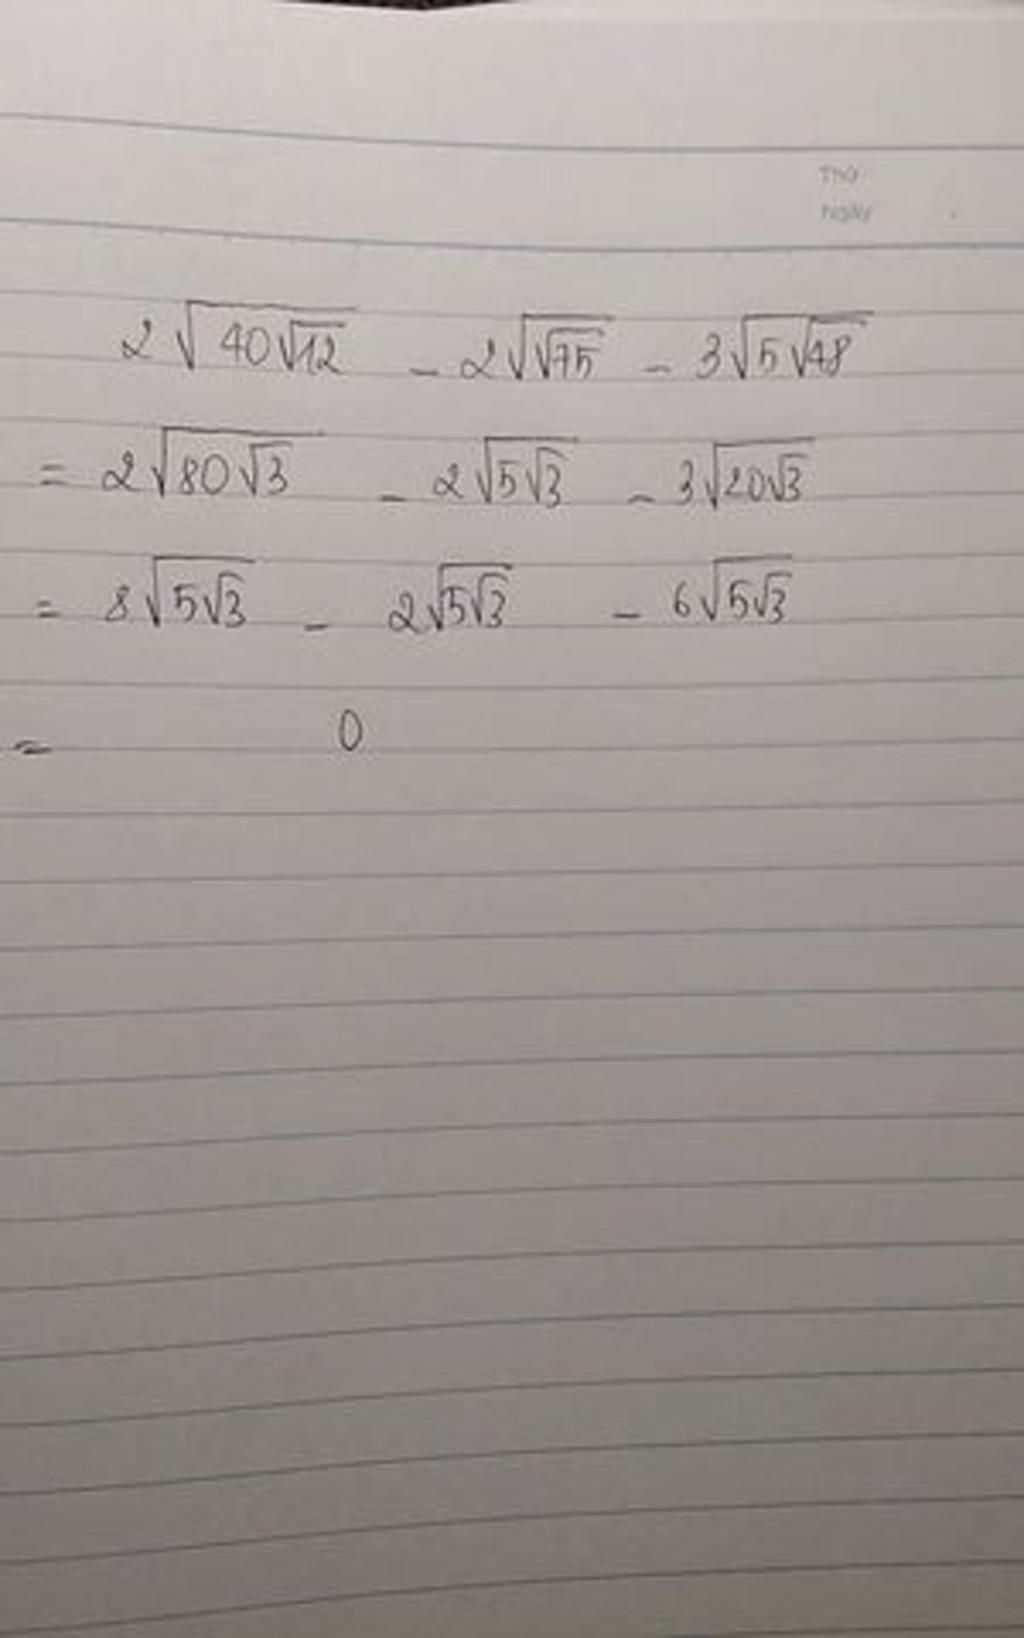 Thứ
Ngày
2√(40√12) - 2√(√75) - 3√(5√48)
= 2√(80√3) - 2√(5√3) - 3√(20√3)
= 8√(5√3) - 2√(5√3) - 6√(5√3)
= 0